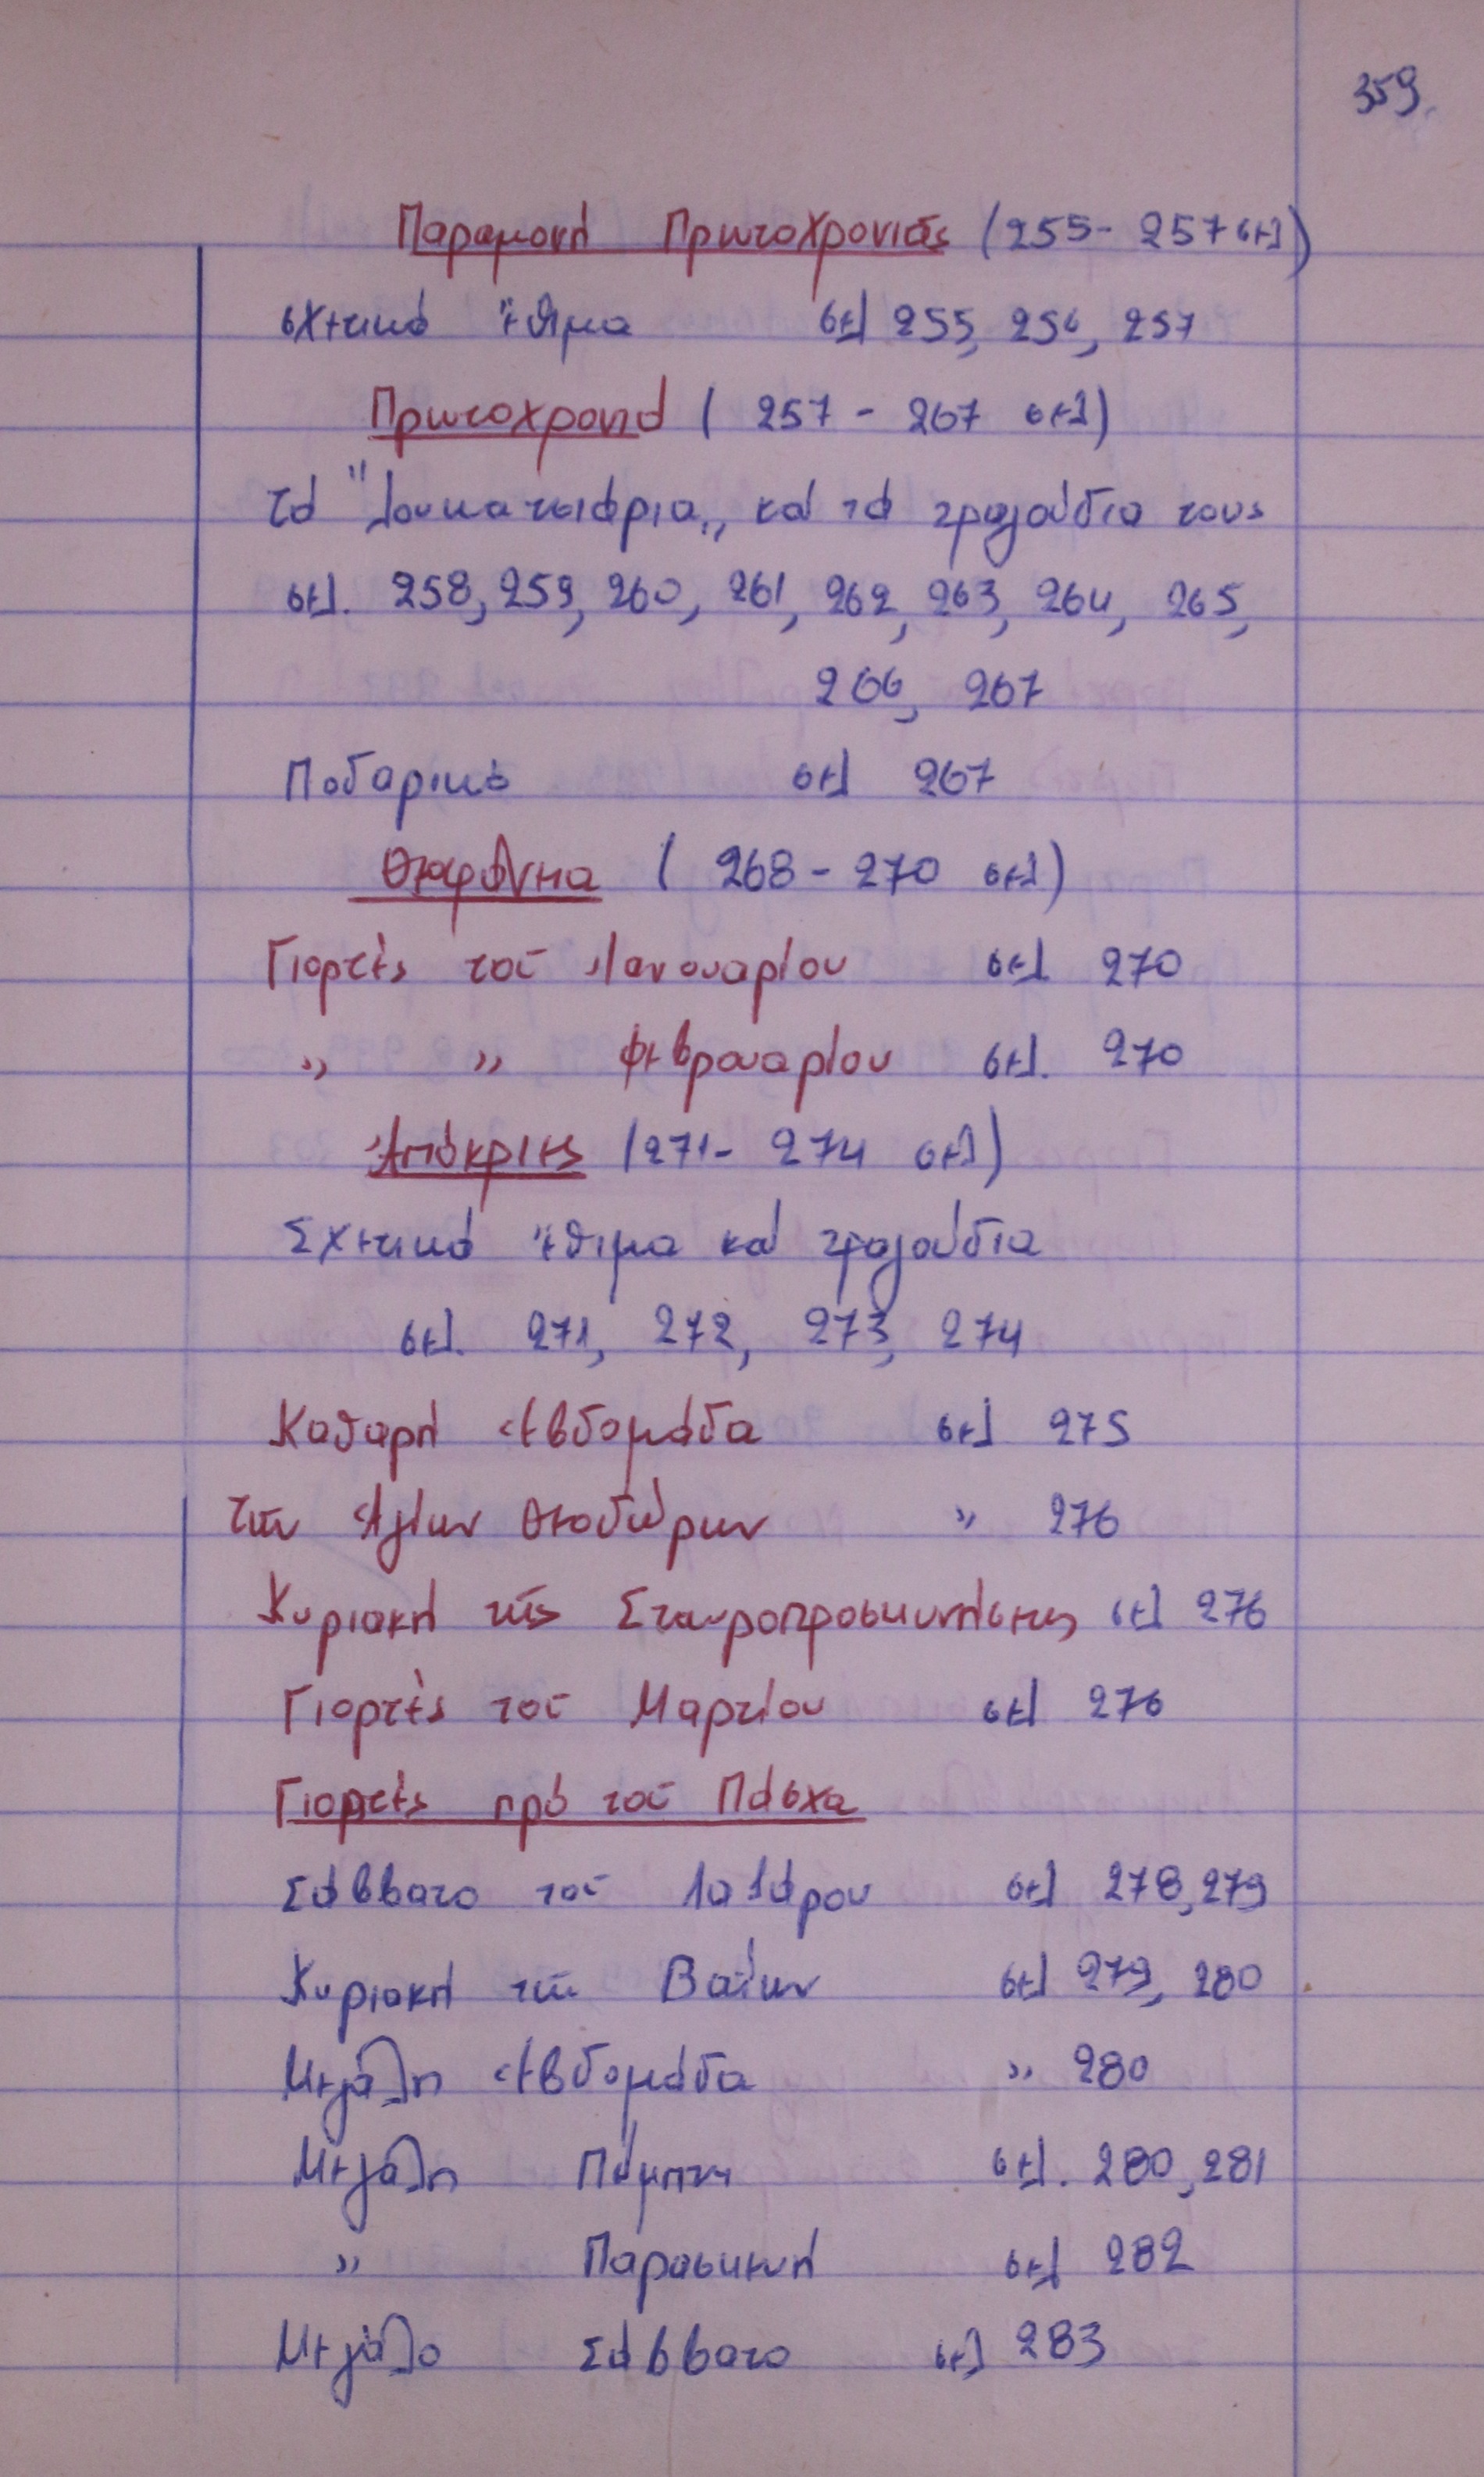 359.
Παραμονή Πρωτοχρονιᾶς (255- 257 σελ)
σχετικά ἔθιμα σελ 255, 256, 257
Πρωτοχρονιά ( 257 - 267 σελ)
τά "Λουκατσιάρια„ καί τά τραγούδια τους
σελ. 258, 259, 260, 261, 262, 263, 264, 265,
266, 267
Ποδαρικό σελ 267
Θεοφάνεια ( 268 - 270 σελ)
Γιορτές τοῦ Ἰανουαρίου σελ 270
„ „ Φεβρουαρίου σελ. 270
Ἀπόκριες (271- 274 σελ)
Σχετικά ἔθιμα καί τραγούδια
σελ. 271, 272, 273, 274
Καθαρή Ἑβδομάδα σελ 275
τῶν Ἁγίων Θεοδώρων „ 276
Κυριακή τῆς Σταυροπροσκυνήσεως σελ 276
Γιορτές τοῦ Μαρτίου σελ 276
Γιορτές πρό τοῦ Πάσχα
Σάββατο τοῦ Λαζάρου σελ 278, 279
Κυριακή τῶν Βαΐων σελ 279, 280
Μεγάλη Ἑβδομάδα „ 280
Μεγάλη Πέμπτη σελ. 280, 281
„ Παρασκευή σελ 282
Μεγάλο Σάββατο σελ 283